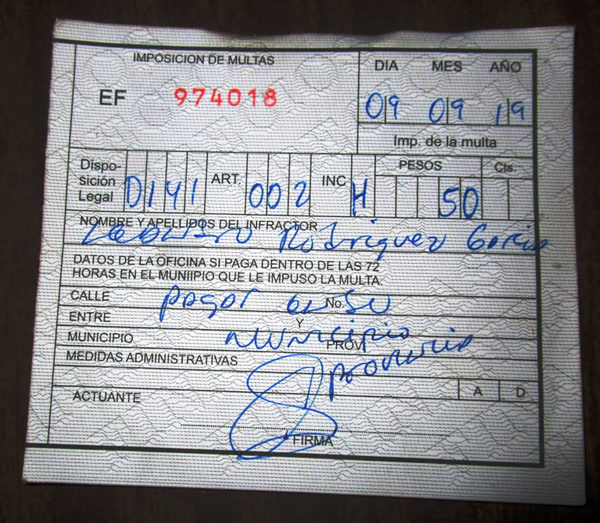 IMPOSICION DE MULTAS
DIA MES AÑO
EF 974018
09 09 19
Imp. de la multa
Dispo-
sición
Legal D141 ART. 002 INC H PESOS 50 Cts.
NOMBRE Y APELLIDOS DEL INFRACTOR
Rodriguez Garcia
DATOS DE LA OFICINA SI PAGA DENTRO DE LAS 72
HORAS EN EL MUNIIPIO QUE LE IMPUSO LA MULTA.
CALLE pagar en su No.
ENTRE Y
MUNICIPIO municipio PROV.
MEDIDAS ADMINISTRATIVAS
A D
ACTUANTE
FIRMA